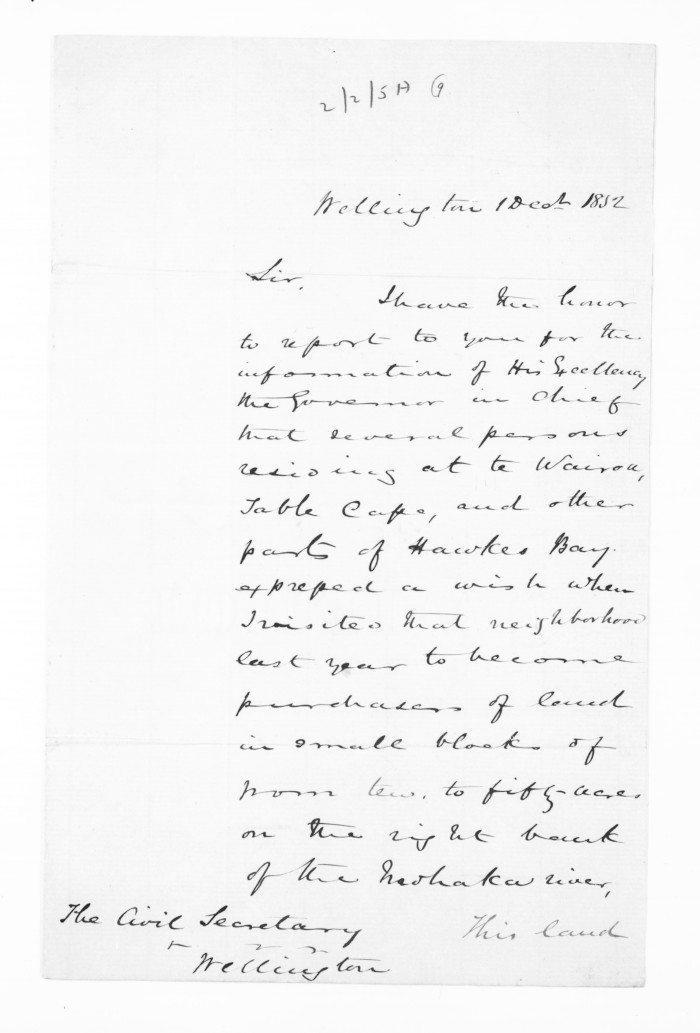 2/2/5A 9
Wellington 1 Decr 1852
Sir,
I have the honor
to report to you for the
information of His Excellency
the Governor in Chief
that several persons
residing at te Wairoa,
Table Cape, and other
parts of Hawkes Bay.
expressed a wish when
I visited that neighborhood
last year to become
purchasers of land
in small blocks of
from ten. to fifty acres
on the right bank
of the Mohaka river,
The Civil Secretary
Wellington
This land